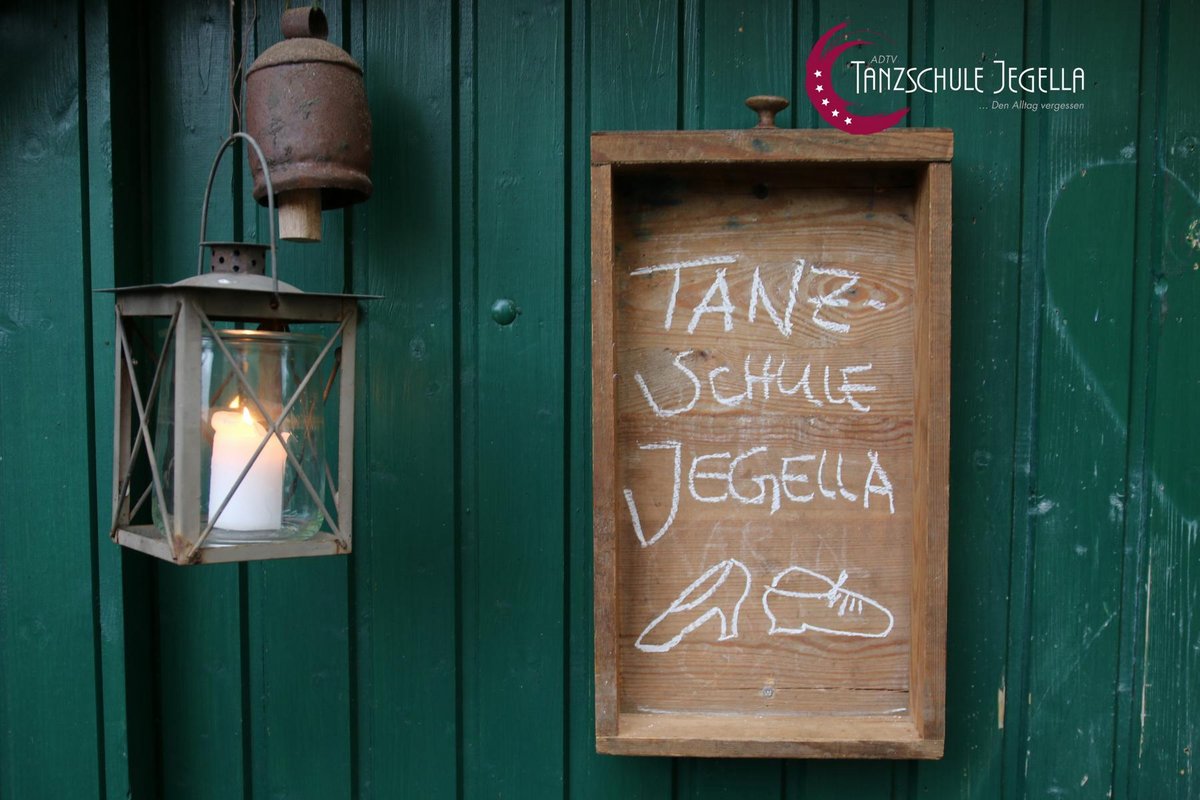 ADTV
TANZSCHULE JEGELLA
... Den Alltag vergessen
TANZ-
SCHULE
JEGELLA